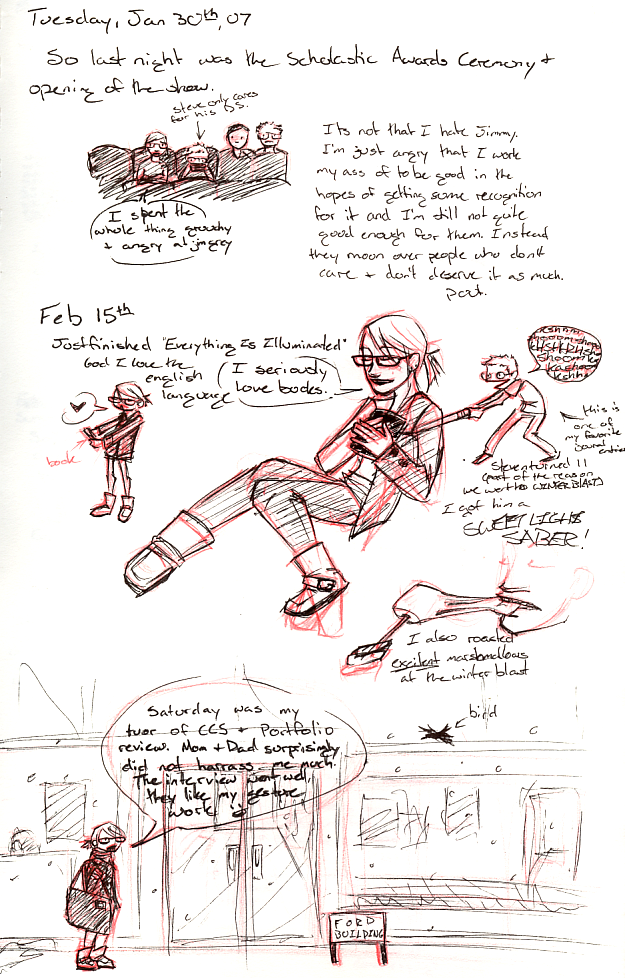 Tuesday, Jan 30th, 07
So last night was the Scholastic Awards Ceremony +
opening of the show.
Steve only cares
for his DS.
I spent the
whole thing grouchy
+ angry at jimmy
Its not that I hate Jimmy.
I'm just angry that I work
my ass of to be good in the
hopes of getting some recognition
for it and I'm still not quite
good enough for them. Instead
they moon over people who don't
care + don't deserve it as much.
Pout.
Feb 15th
Just finished "Everything Is Illuminated"
God I love the
english
language
book
I seriously
love books.
kshhh
shooom shoo
kHSHKRHSH
shoom ke
kashoom
kshhh
this is
one of
my favorite
journal
entries
Steven turned 11
(part of the reason
we went to WINTER BLAST)
I got him a
SWEET LIGHT
SABER!
I also roasted
excilent marshmellows
at the winter blast
Saturday was my
tuor of CCS + Portfolio
review. Mom + Dad surprisingly
did not harrass me much.
The interview went well,
they like my gesture
work :)
bird
FORD
BUILDING